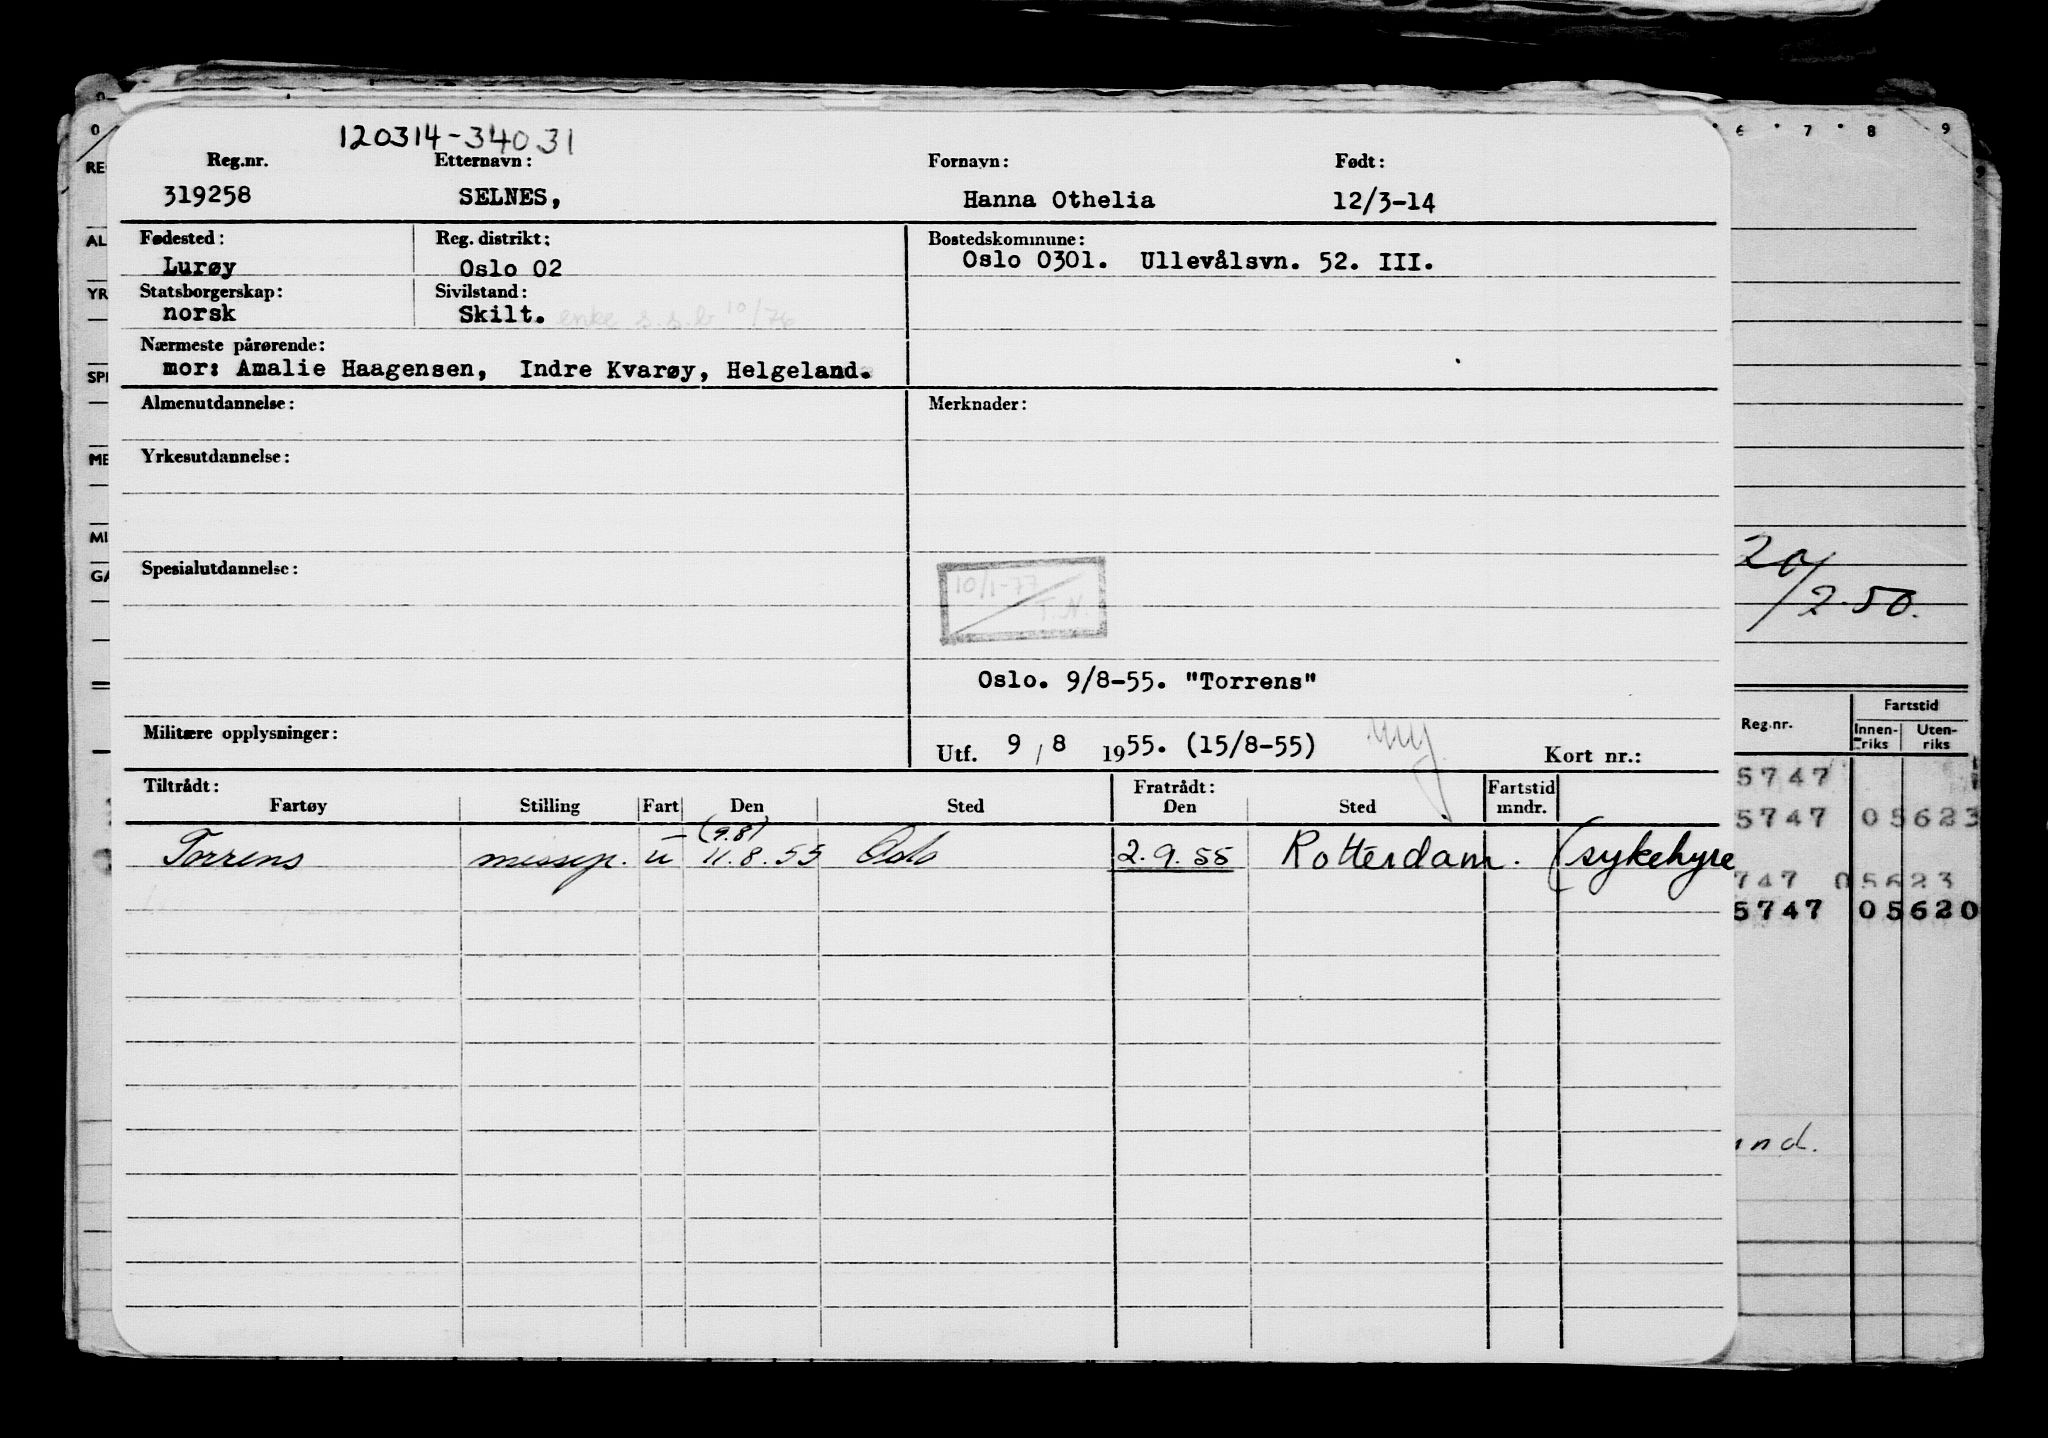 120314-34031
Reg.nr. Etternavn: Fornavn: Født:
319258 SELNES, Hanna Othelia 12/3-14
Fødested: Reg. distrikt: Bostedskommune:
Lurøy Oslo 02 Oslo 0301. Ullevålsvn. 52. III.
Statsborgerskap: Sivilstand:
norsk Skilt. enke s.s.b 10/76
Nærmeste pårørende:
mor: Amalie Haagensen, Indre Kvarøy, Helgeland.
Almenutdannelse: Merknader:
Yrkesutdannelse:
Spesialutdannelse:
10/1-77
T.N.
Oslo. 9/8-55. "Torrens"
Militære opplysninger:
Utf. 9 / 8 1955. (15/8-55) Kort nr.:
Tiltrådt: Fratrådt: Fartstid
Fartøy Stilling Fart Den Sted Den Sted mndr.
(9.8)
Torrens messep. u 11.8.55 Oslo 2.9.55 Rotterdam. (sykehyre
6 7 8 9
20/2.50.
Reg.nr. Fartstid
Innenriks Utenriks
5747
5747 05623
747 05623
5747 05620
nd.
0
RE
AL
YR
SPE
ME
MI
GA